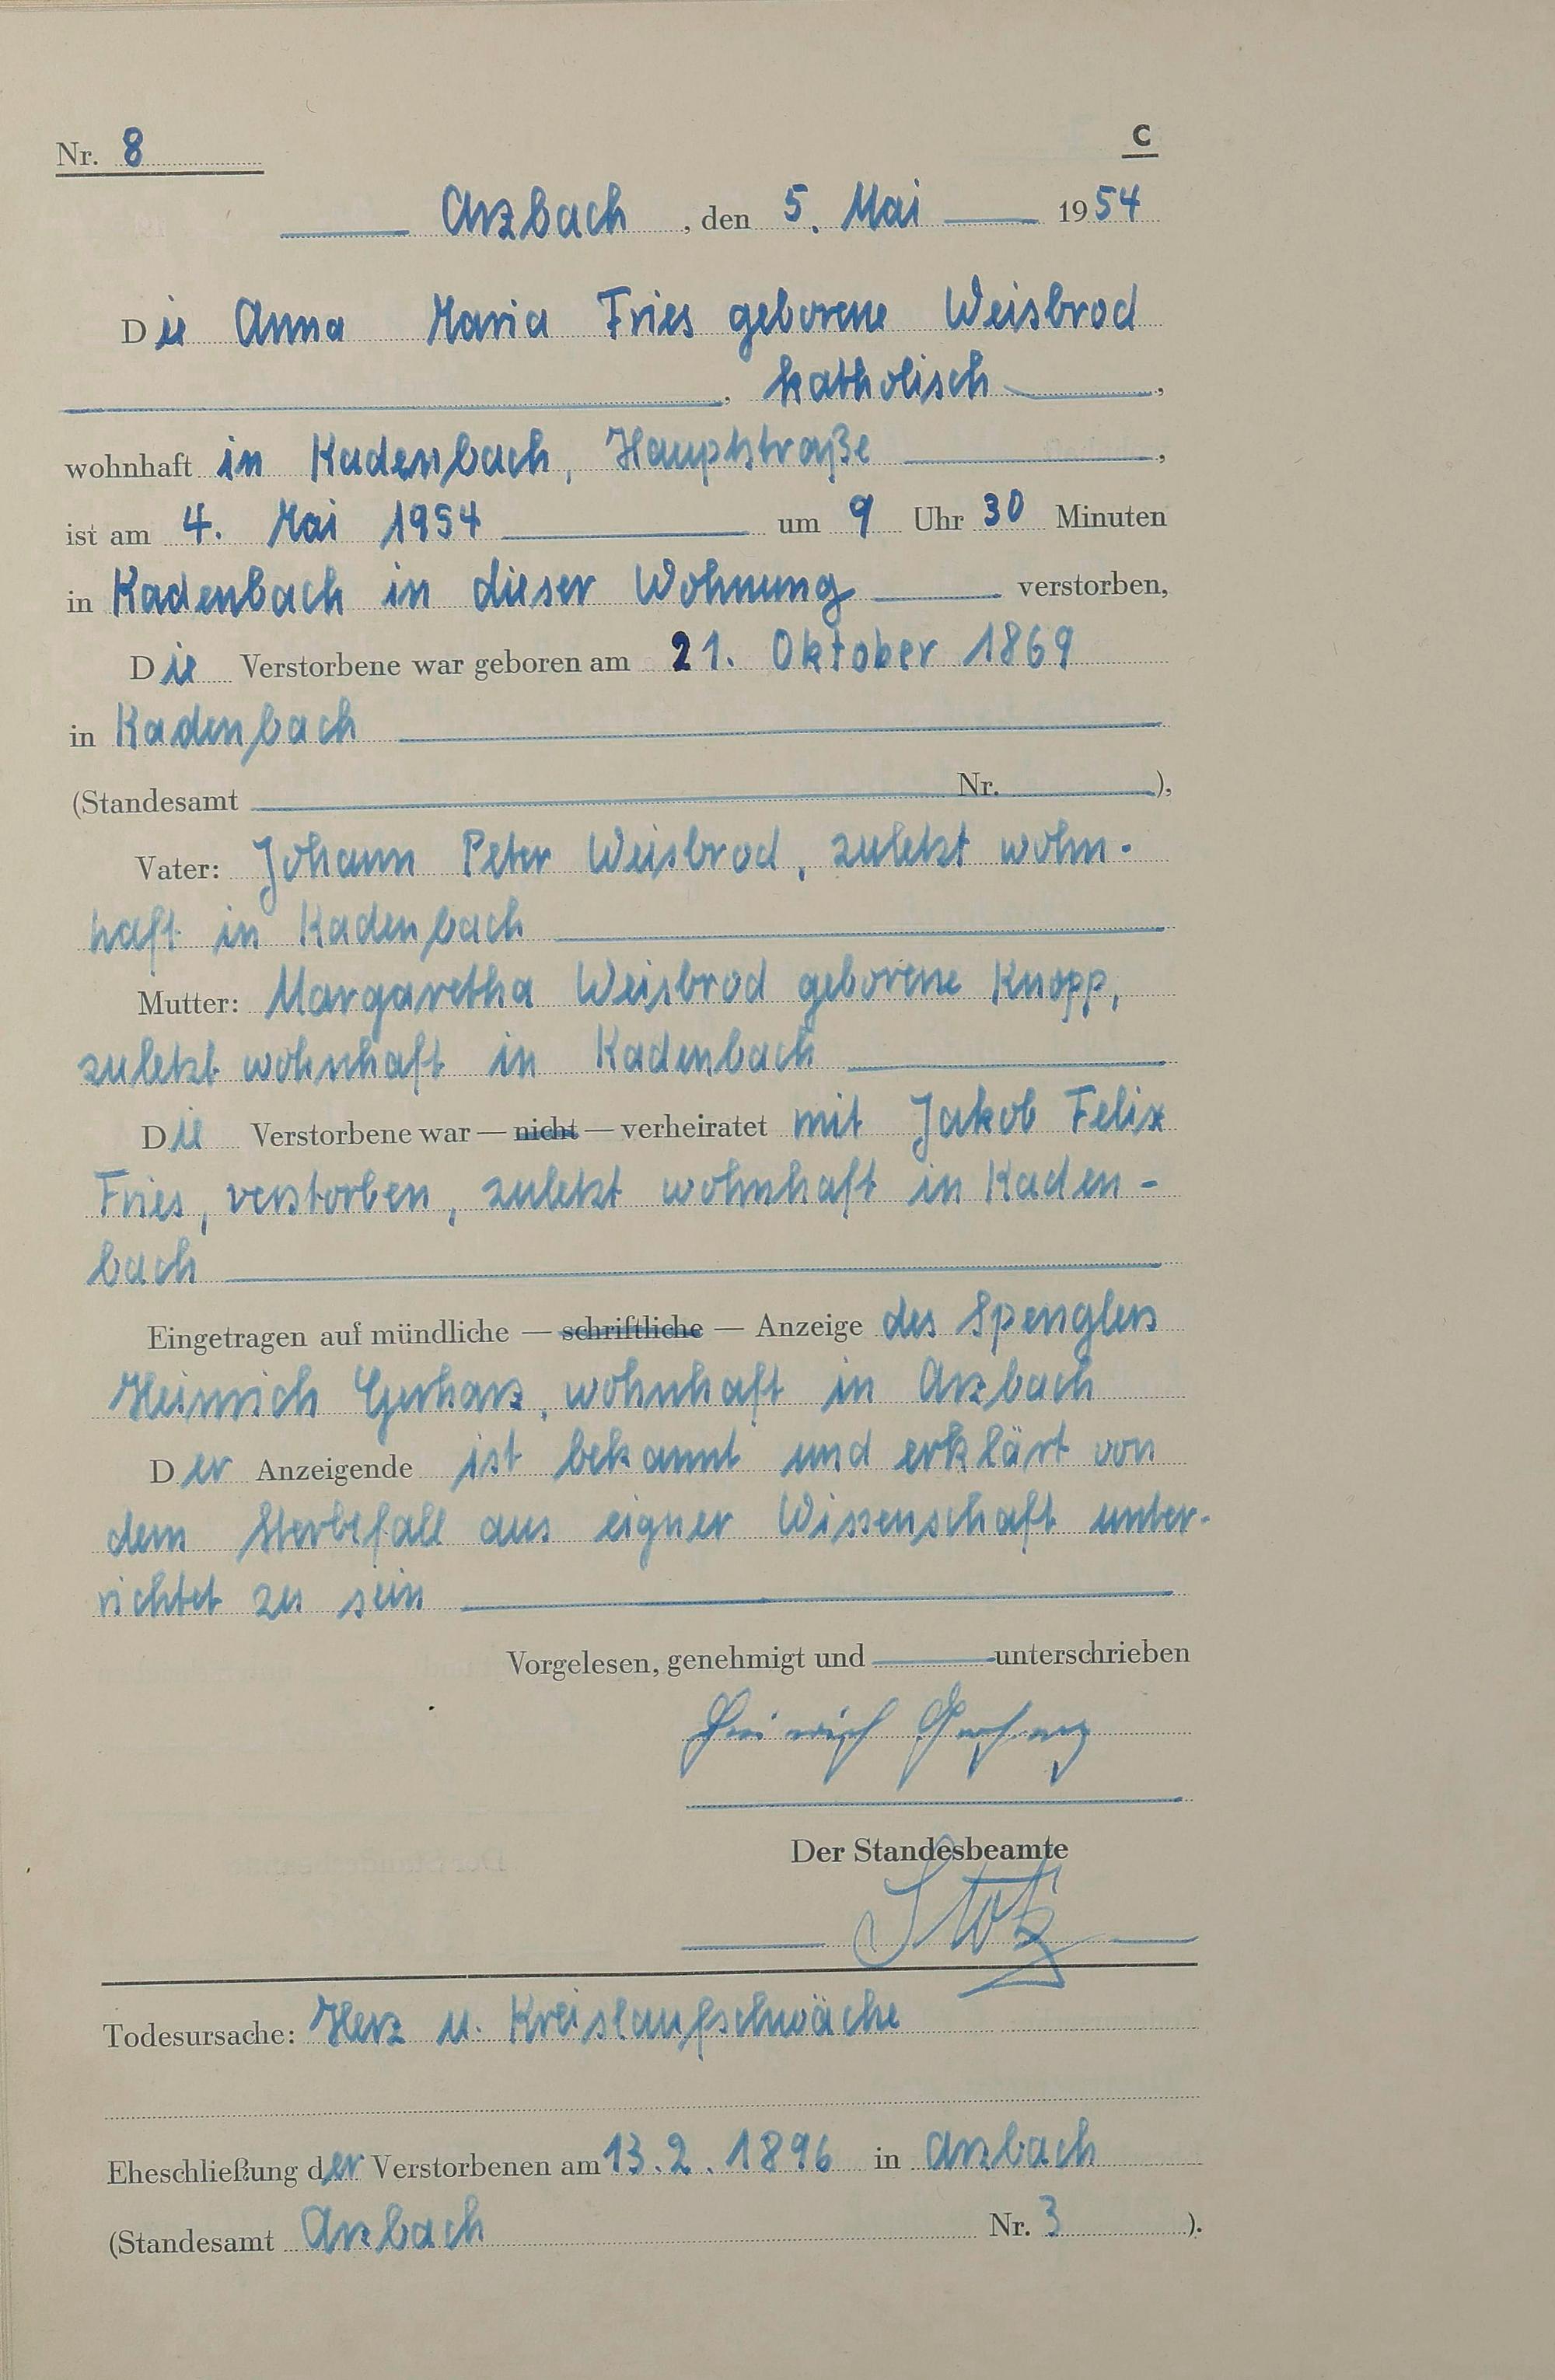 Nr. 8
C
Arzbach, den 5. Mai 1954
Die Anna Maria Fries geborene Weisbrod
, katholisch,
wohnhaft in Kadenbach, Hauptstraße,
ist am 4. Mai 1954 um 9 Uhr 30 Minuten
in Kadenbach in dieser Wohnung verstorben,
Die Verstorbene war geboren am 21. Oktober 1869
in Kadenbach
(Standesamt Nr. ),
Vater: Johann Peter Weisbrod, zuletzt wohn-
haft in Kadenbach
Mutter: Margaretha Weisbrod geborene Knopp,
zuletzt wohnhaft in Kadenbach
Die Verstorbene war — nicht — verheiratet mit Jakob Felix
Fries, verstorben, zuletzt wohnhaft in Kaden-
bach
Eingetragen auf mündliche — schriftliche — Anzeige des Spenglers
Heinrich Gerharz, wohnhaft in Arzbach
Der Anzeigende ist bekannt und erklärt von
dem Sterbefall aus eigner Wissenschaft unter-
richtet zu sein
Vorgelesen, genehmigt und unterschrieben
Heinrich Gerharz
Der Standesbeamte
Stotz
Todesursache: Herz u. Kreislaufschwäche
Eheschließung der Verstorbenen am 13.2.1896 in Arzbach
(Standesamt Arzbach Nr. 3 ).